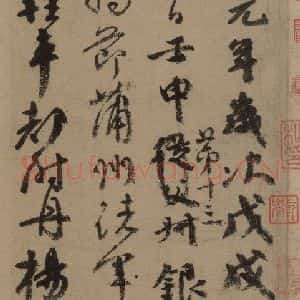 元年歲次戊戌
第十三
日壬申從父叔銀
持節蒲州諸軍
輕車都尉丹楊